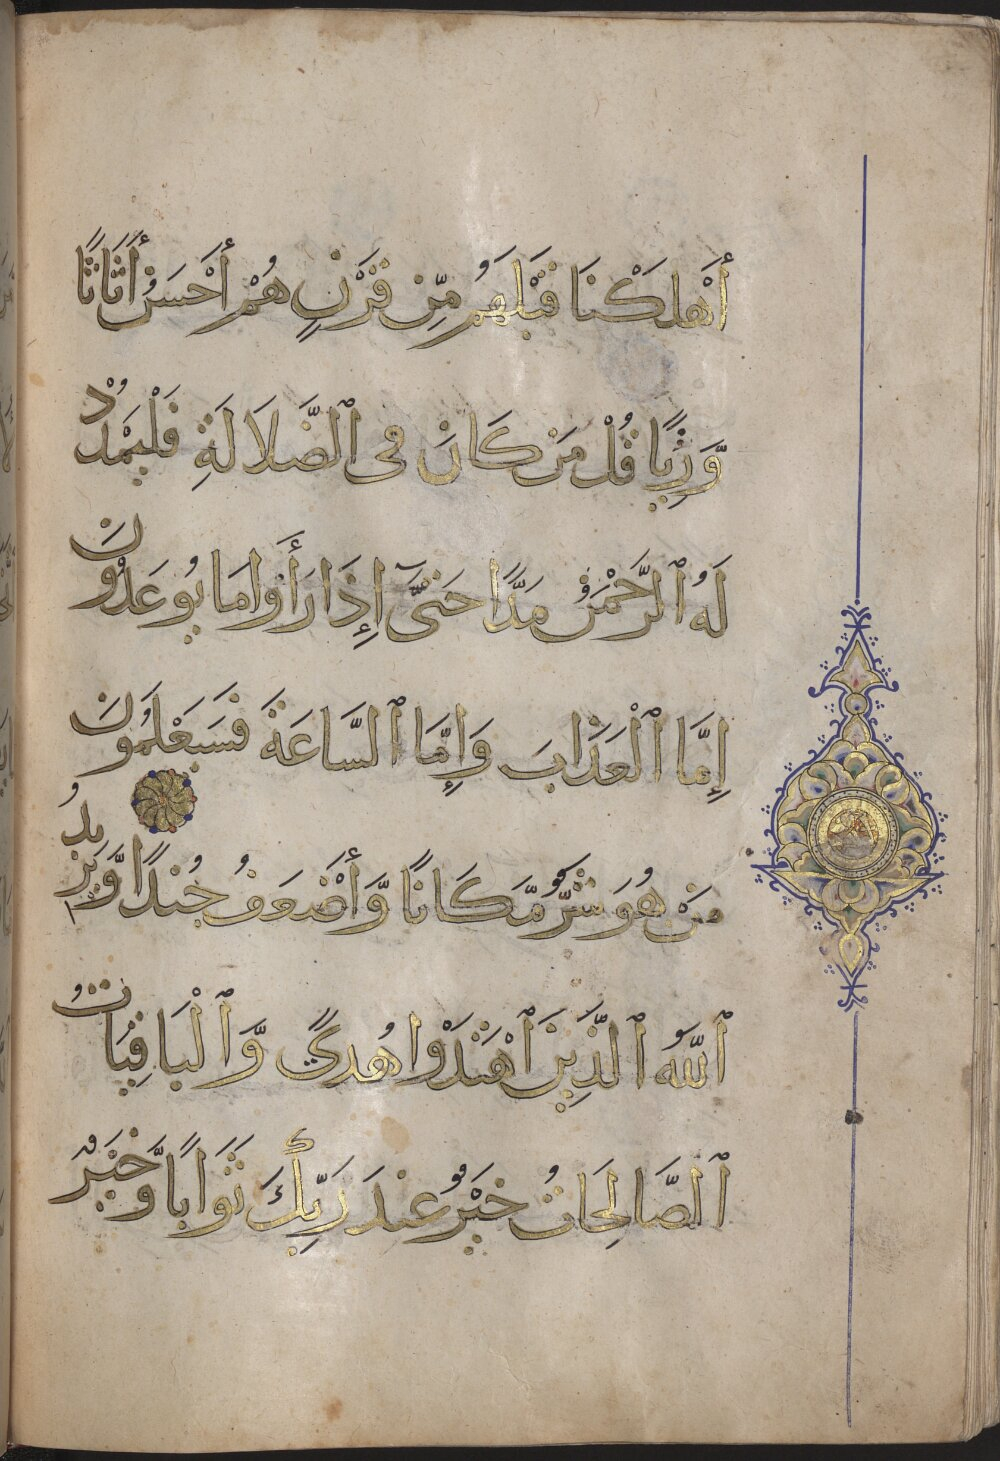 أَهْلَكْنَا قَبْلَهُم مِّن قَرْنٍ هُمْ أَحْسَنُ أَثَاثًا
وَّرِئْيًا قُلْ مَن كَانَ فِى ٱلضَّلَالَةِ فَلْيَمْدُدْ
لَهُ ٱلرَّحْمَٰنُ مَدًّا حَتَّىٰٓ إِذَا رَأَوْا مَا يُوعَدُونَ
إِمَّا ٱلْعَذَابَ وَإِمَّا ٱلسَّاعَةَ فَسَيَعْلَمُونَ
مَنْ هُوَ شَرٌّ مَّكَانًا وَّأَضْعَفُ جُندًا وَّيَزِيدُ
ٱللَّهُ ٱلَّذِينَ ٱهْتَدَوْا هُدًى وَّٱلْبَاقِيَاتُ
ٱلصَّالِحَاتُ خَيْرٌ عِندَ رَبِّكَ ثَوَابًا وَّخَيْرٌ